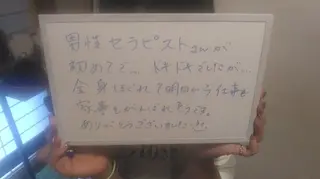 男性セラピストさんが
初めてで、ドキドキでしたが、
全身ほぐれて明日から仕事も
家事もがんばれそうです。
ありがとうございました